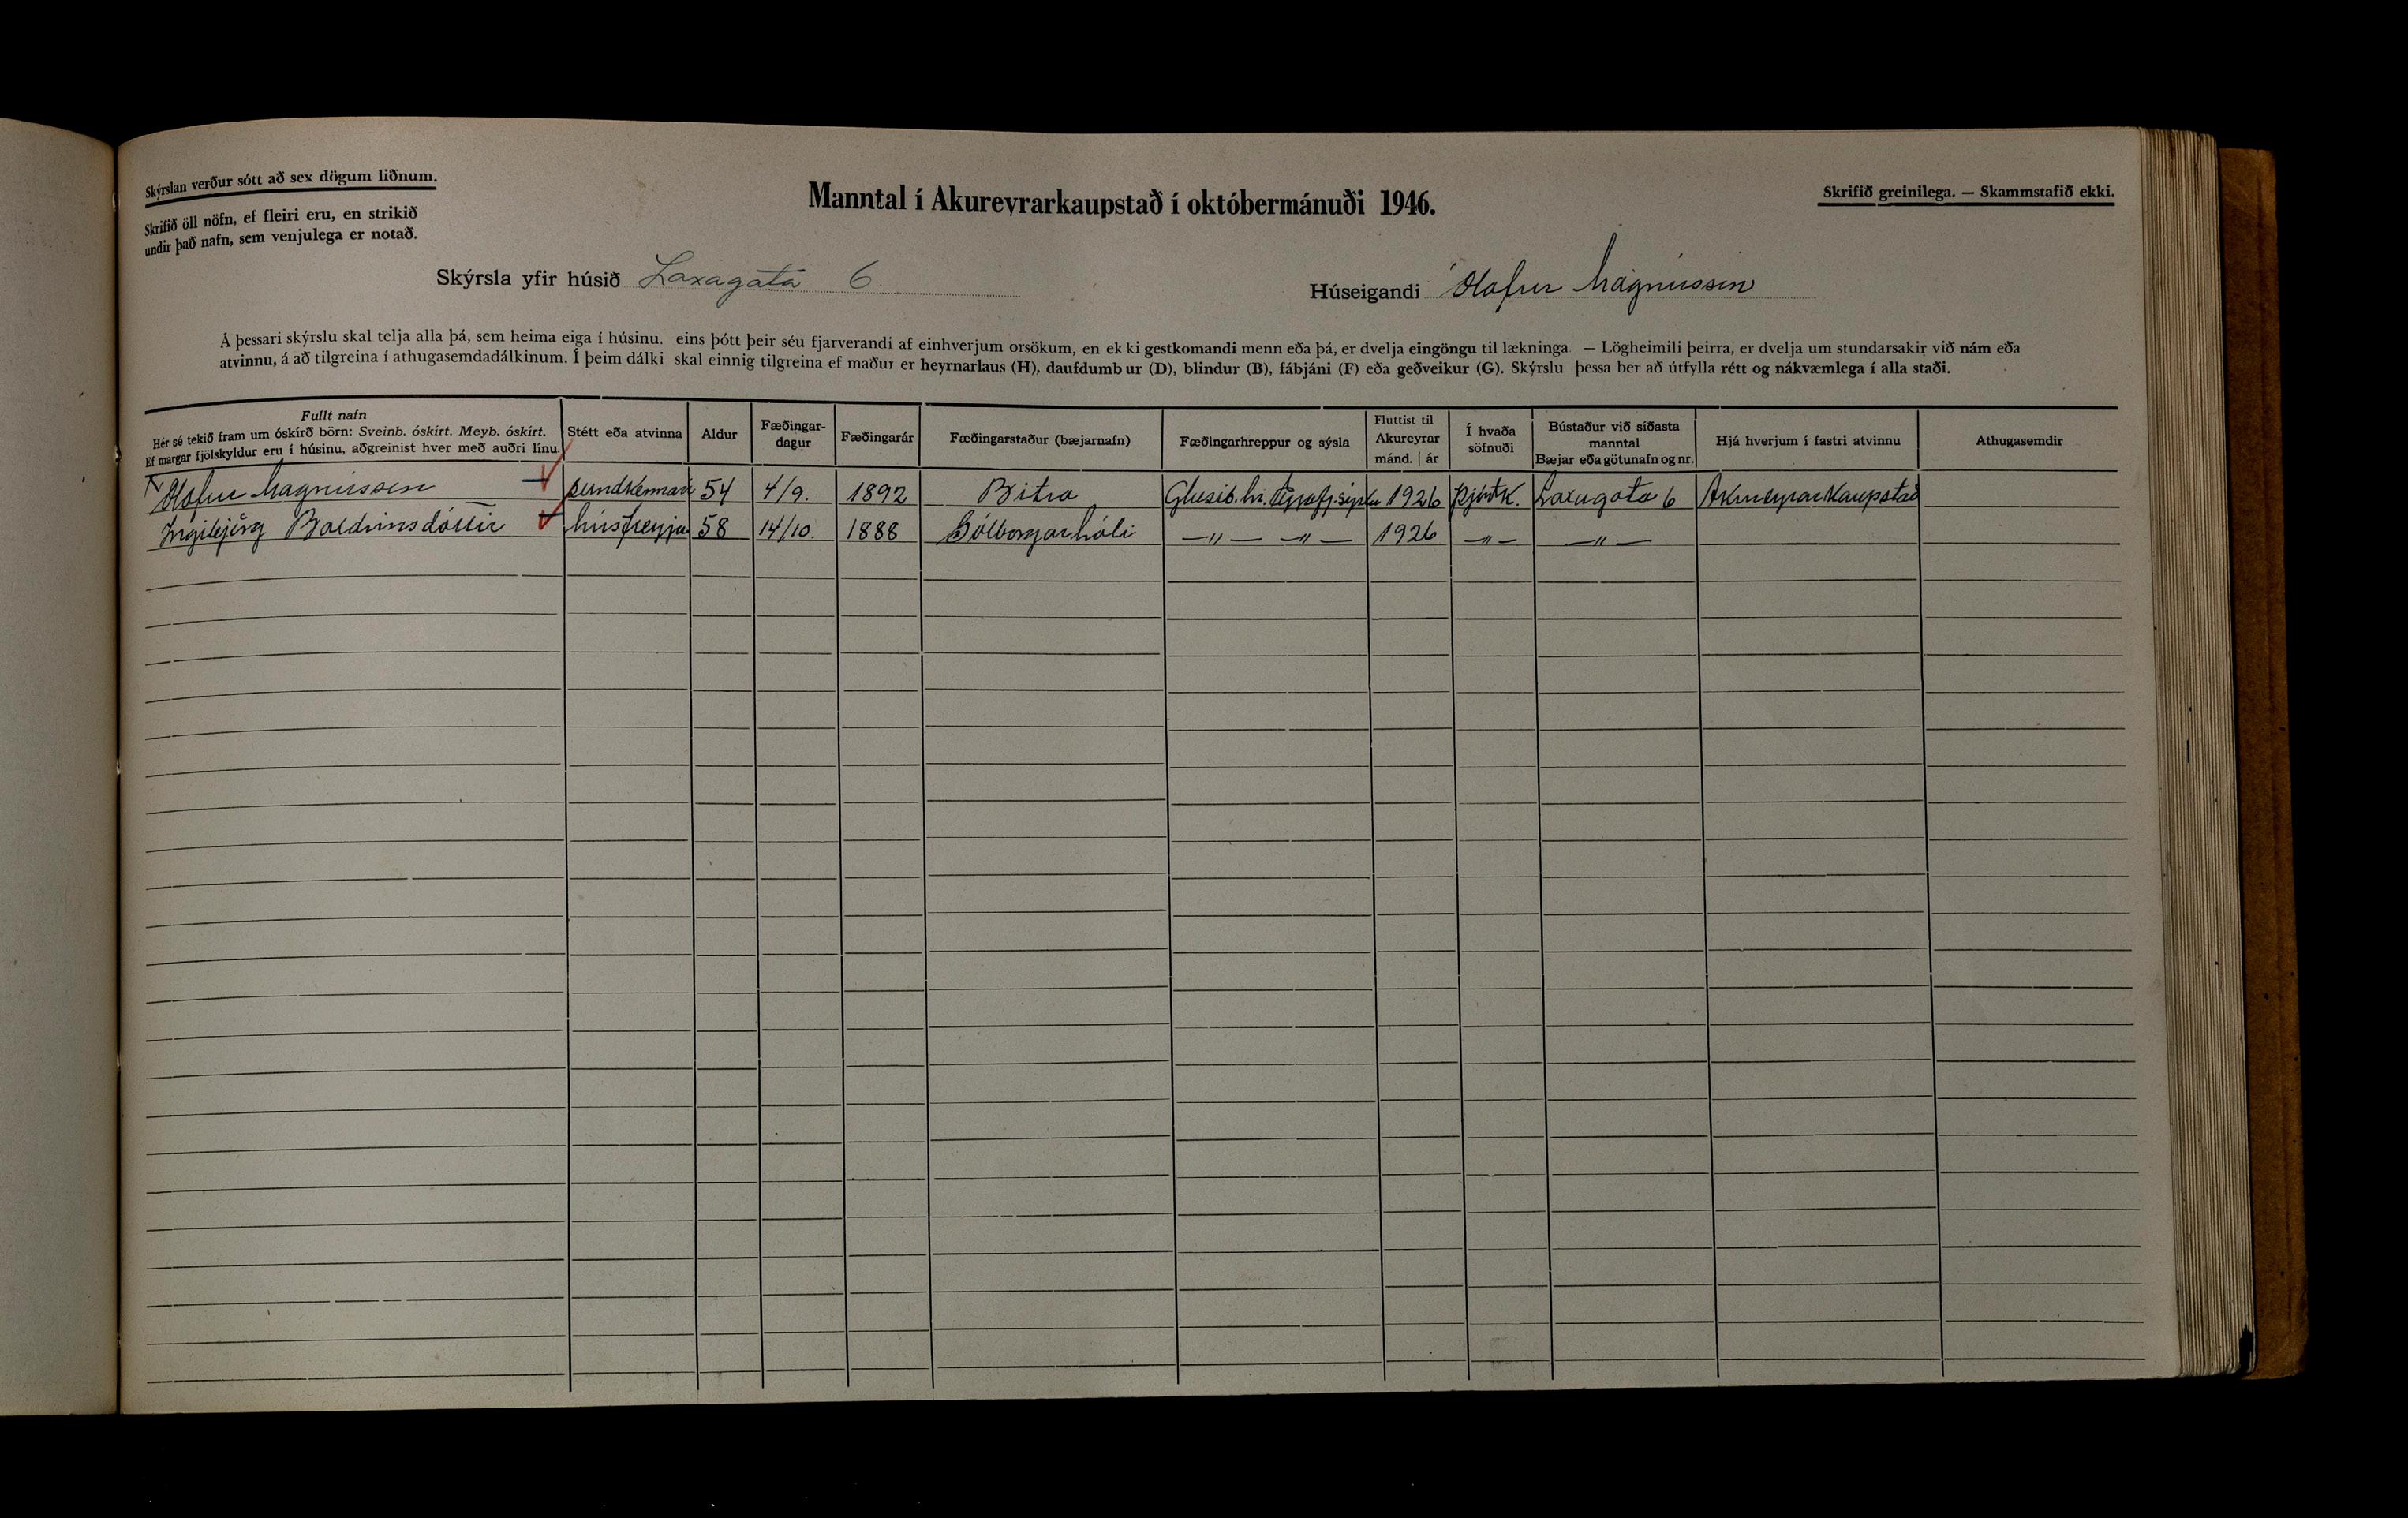 Skýrslan verður sótt að sex dögum liðnum.
Skrifið öll nöfn, ef fleiri eru, en strikið
undir það nafn, sem venjulega er notað.
Manntal í Akureyrarkaupstað í októbermánuði 1946.
Skrifið greinilega. — Skammstafið ekki.
Skýrsla yfir húsið Laxagata 6
Húseigandi Ólafur Magnússon
Á þessari skýrslu skal telja alla þá, sem heima eiga í húsinu, eins þótt þeir séu fjarverandi af einhverjum orsökum, en ekki gestkomandi menn eða þá, er dvelja eingöngu til lækninga. — Lögheimili þeirra, er dvelja um stundarsakir við nám eða
atvinnu, á að tilgreina í athugasemdadálkinum. Í þeim dálki skal einnig tilgreina ef maður er heyrnarlaus (H), daufdumbur (D), blindur (B), fábjáni (F) eða geðveikur (G). Skýrslu þessa ber að útfylla rétt og nákvæmlega í alla staði.
Fullt nafn
Hér sé tekið fram um óskírð börn: Sveinb. óskírt. Meyb. óskírt.
Ef margar fjölskyldur eru í húsinu, aðgreinist hver með auðri línu.
Stétt eða atvinna
Aldur
Fæðingar-
dagur
Fæðingarár
Fæðingarstaður (bæjarnafn)
Fæðingarhreppur og sýsla
Fluttist til
Akureyrar
mánd. | ár
Í hvaða
söfnuði
Bústaður við síðasta
manntal
Bæjar eða götunafn og nr.
Hjá hverjum í fastri atvinnu
Athugasemdir
Ólafur Magnússon sundkennari 54 4/9. 1892 Bitra Glæsib.hr. Eyjafj.sýslu 1926 Þjóðk. Laxagata 6 Akureyrarkaupstað
Ingibjörg Baldvinsdóttir húsfreyja 58 14/10. 1888 Sólborgarhóli —〃— —〃— 1926 —〃— —〃—